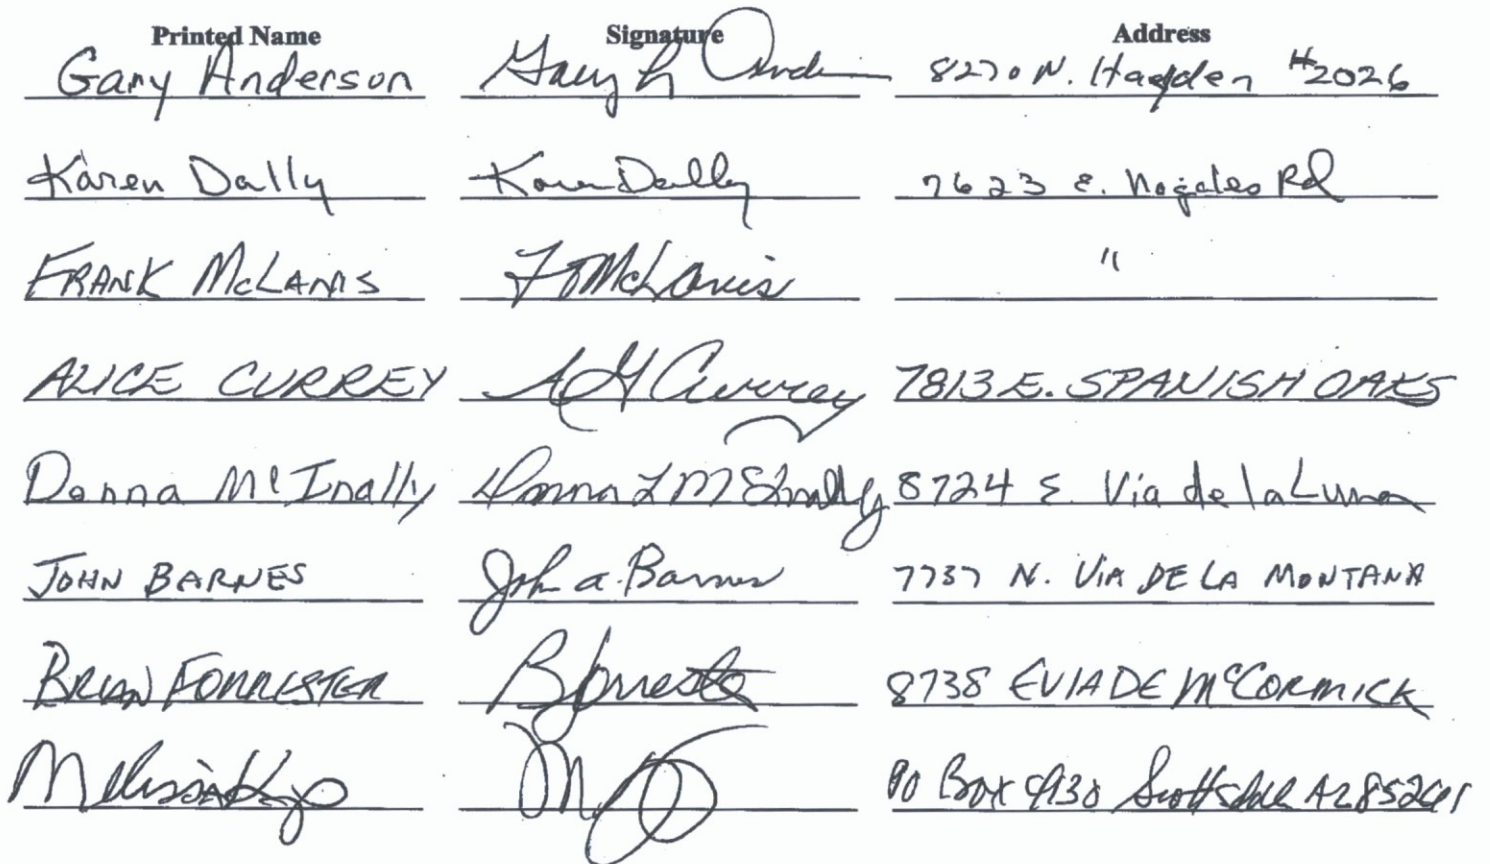 Printed Name Signature Address
Gary Anderson Gary L Ander 8270 N. Hayden #2026
Karen Dally Karen Dally 7623 E. Nogales Rd
FRANK McLANIS F McLanis "
ALICE CURREY A G Currey 7813 E. SPANISH OAKS
Donna McInally Donna L McInally 8724 E. Via de la Luna
JOHN BARNES John a. Barnes 7737 N. VIA DE LA MONTANA
BRIAN FORRESTER B Forrester 8738 E VIA DE McCORMICK
Melissa PO Box Scottsdale AZ